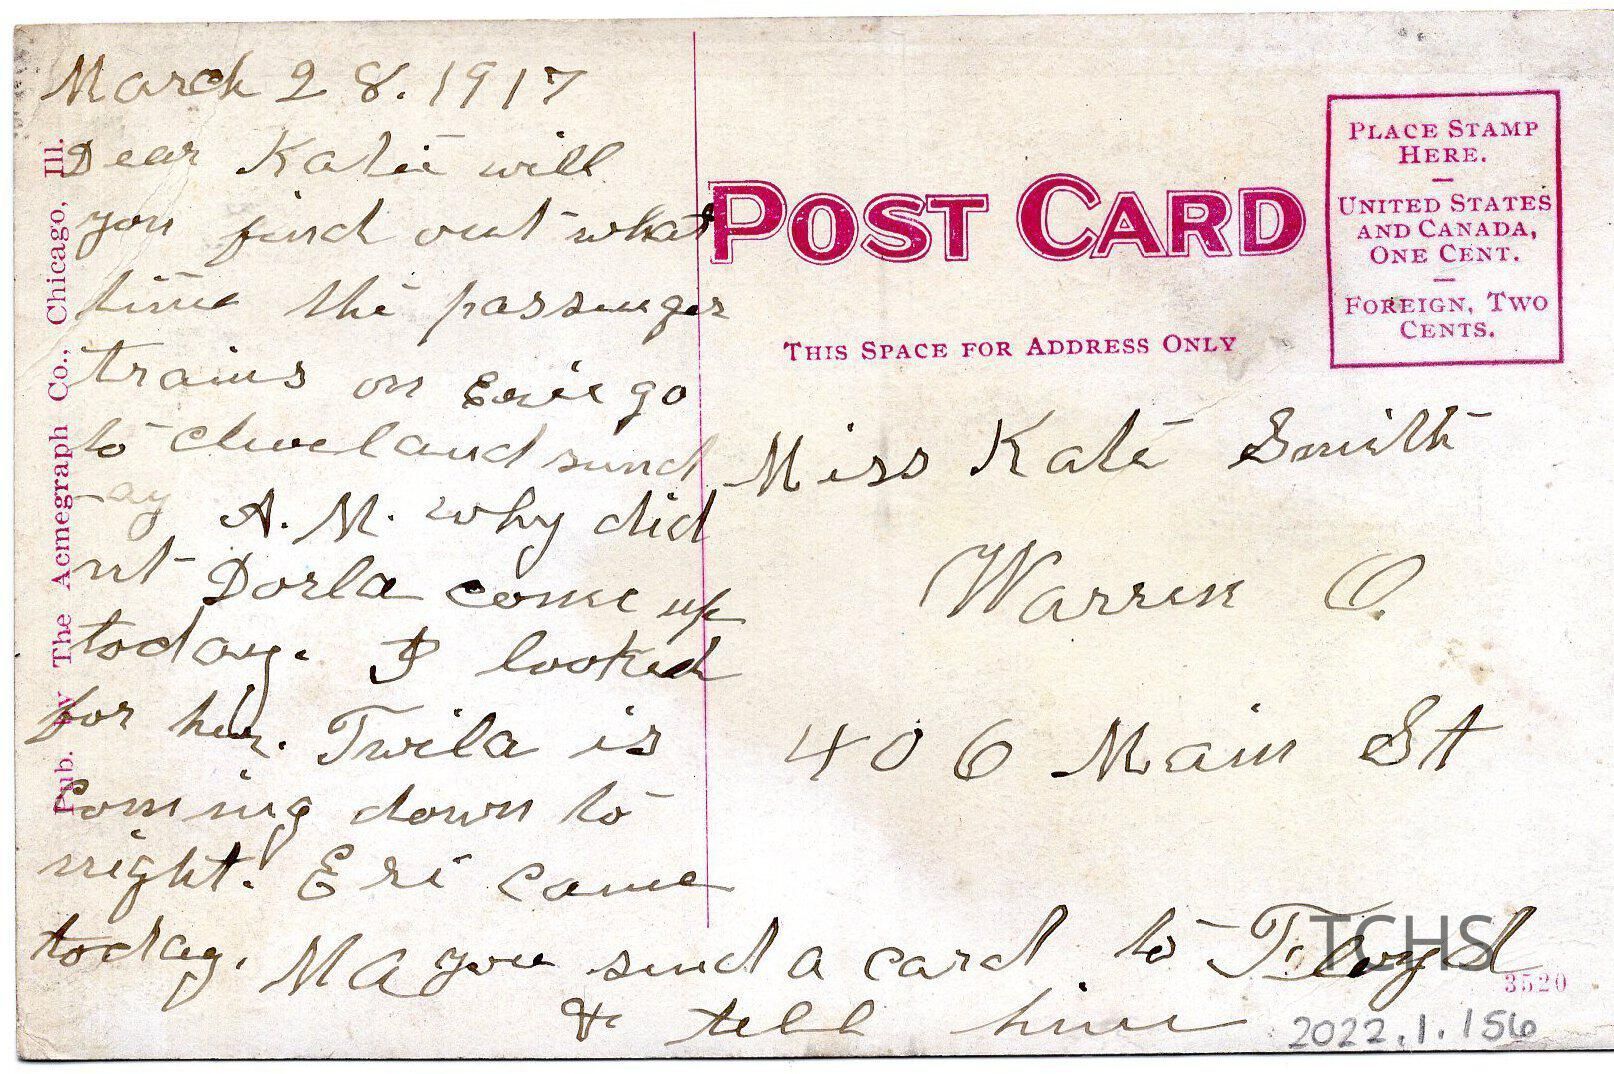 March 28. 1917
Dear Katie will
you find out what
time the passenger
trains on Erie go
to Cleveland sund
-ay A. M. why did
nt Dorla come up
today. I looked
for her. Twila is
coming down to
night. Eri came
today. MA you send a card to Floyd
& tell him
Pub. by The Acmegraph Co., Chicago, Ill.
POST CARD
THIS SPACE FOR ADDRESS ONLY
PLACE STAMP
HERE.
UNITED STATES
AND CANADA,
ONE CENT.
FOREIGN, TWO
CENTS.
Miss Kate Smith
Warren O.
406 Main St
TCHS
3520
2022.1.156